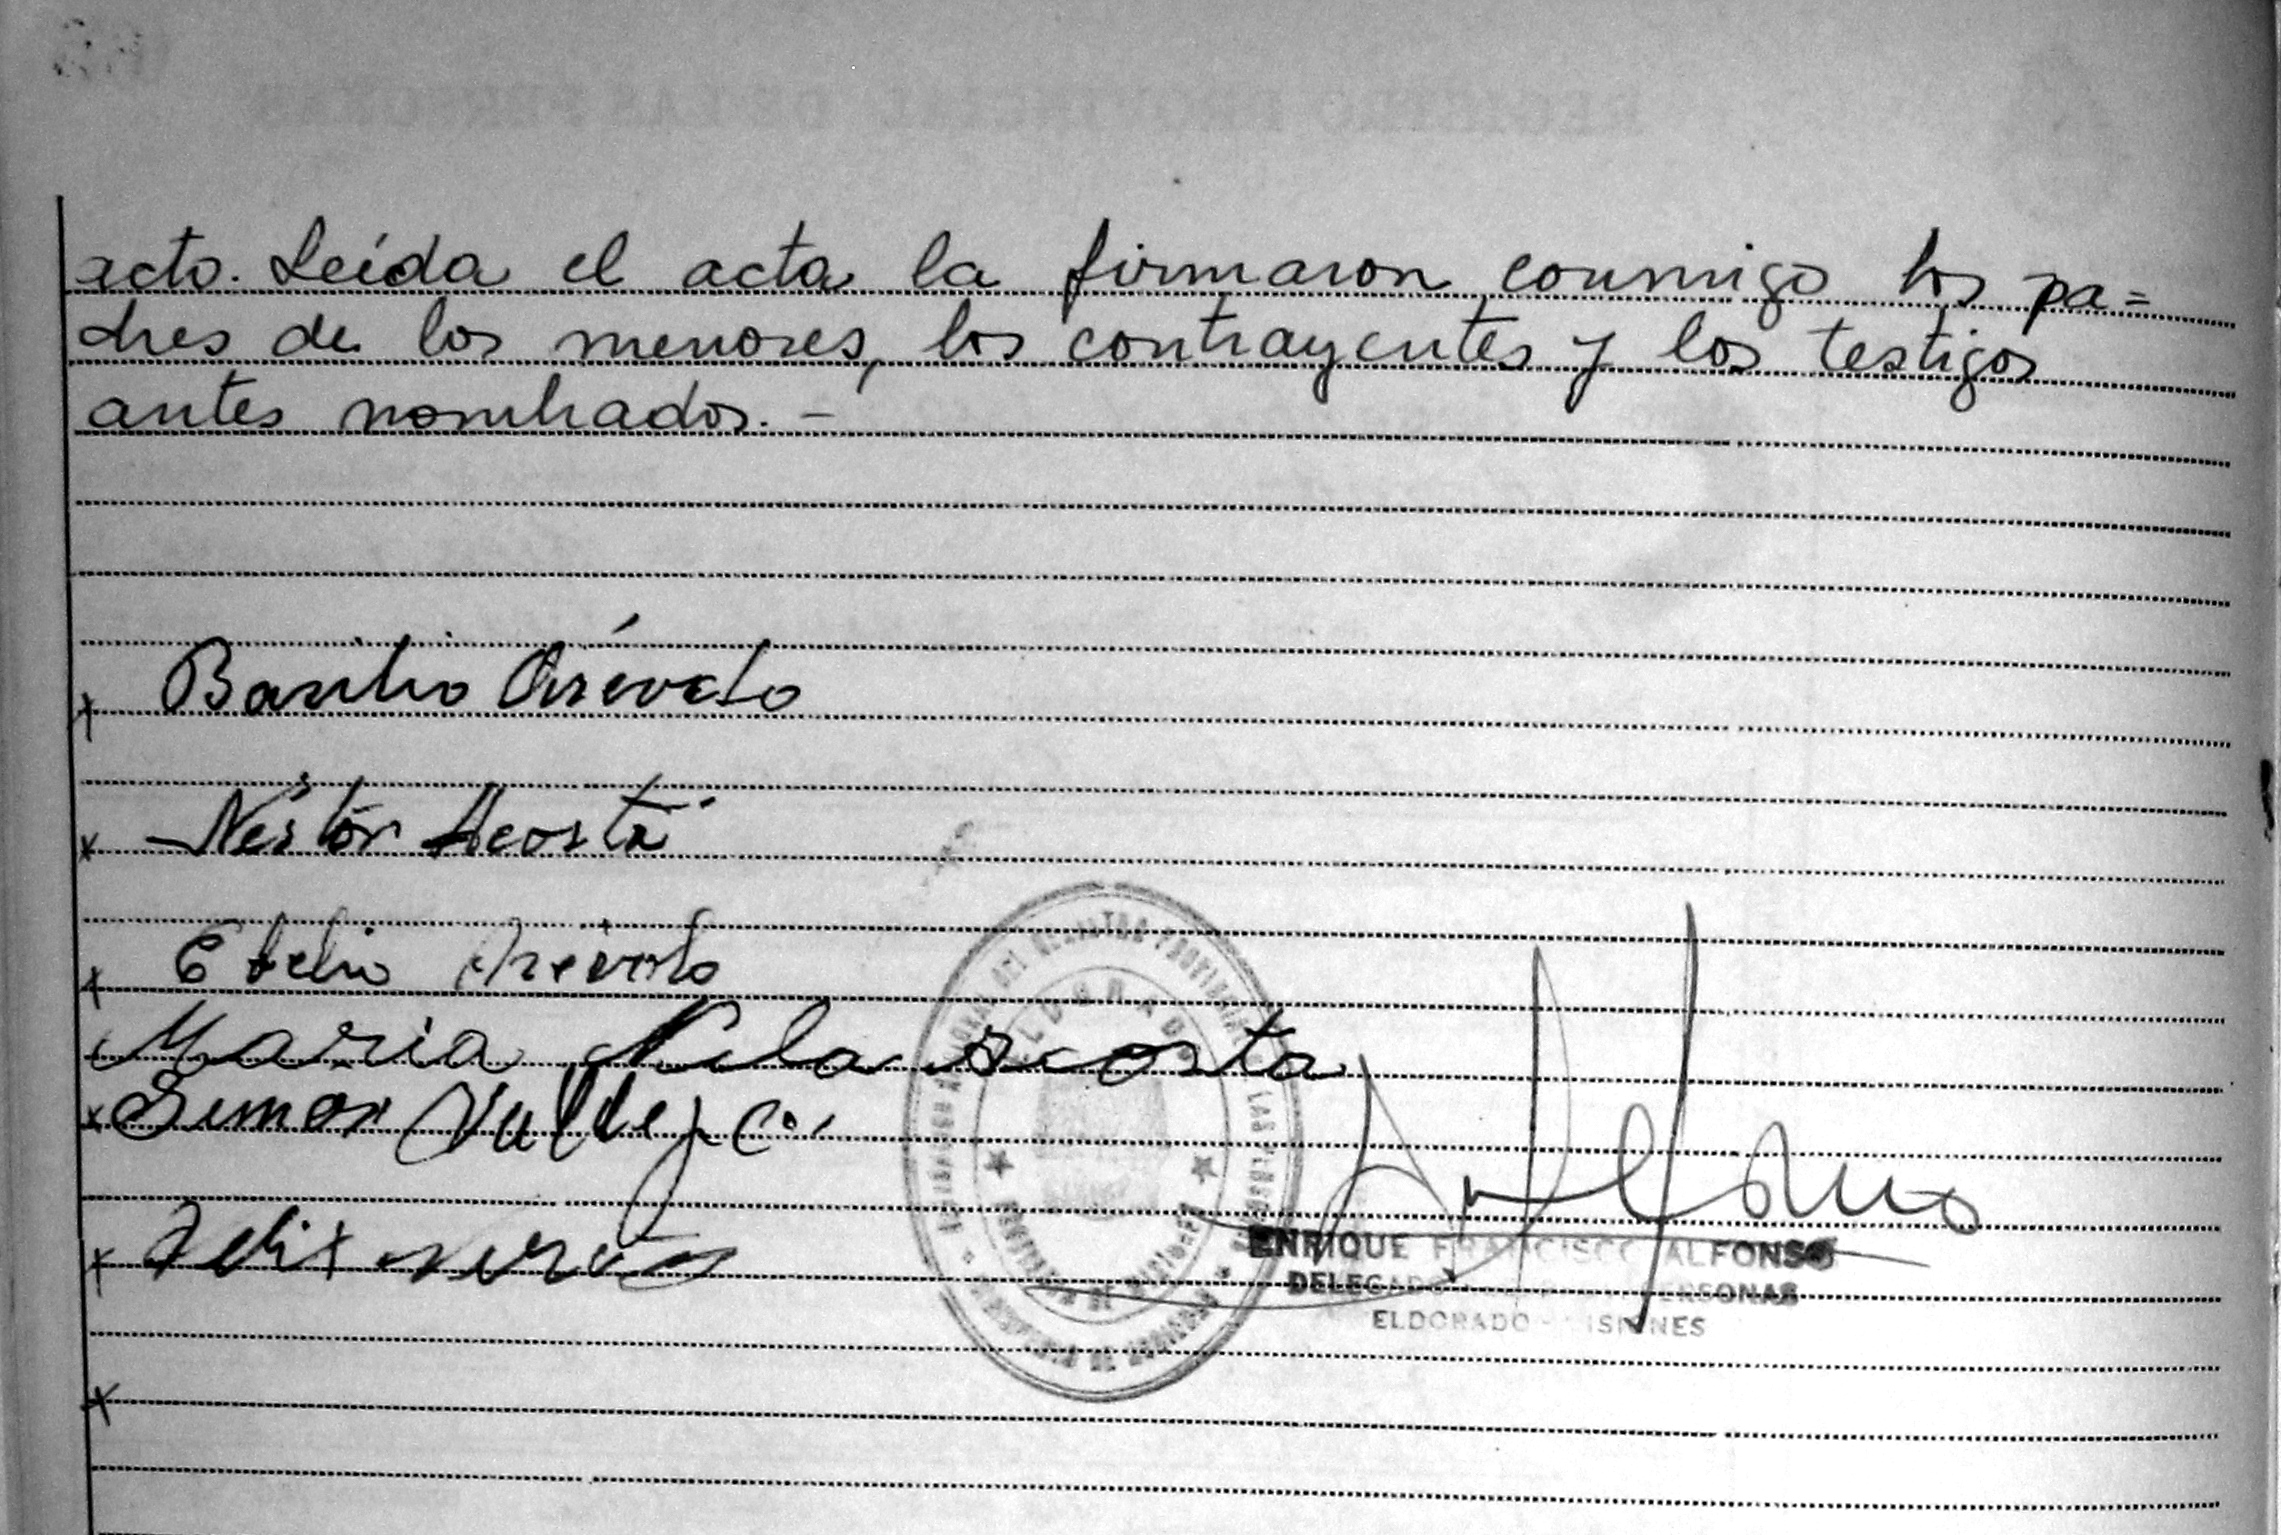 acto. Leída el acta la firmaron conmigo los pa=
dres de los menores, los contrayentes y los testigos
antes nombrados. -
x Basilio Arévalo
x Néstor Acosta
x Arevalo
x Maria Nila acosta
x Simon Vallejos
x Felix
Alfonso
ENRIQUE FRANCISCO ALFONSO
DELEGADO PERSONAS
ELDORADO - MISIONES
x
ELDORADO